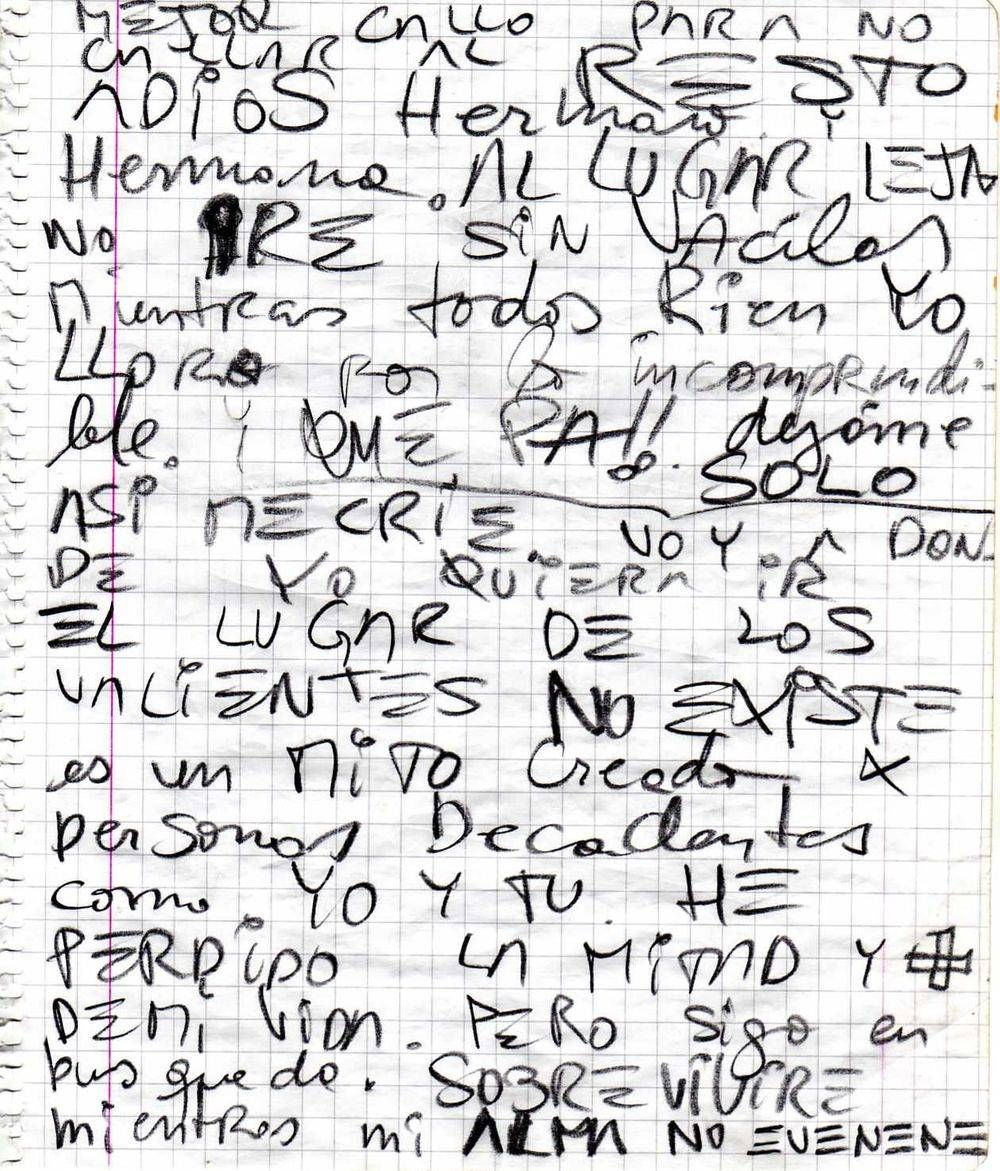 MEJOR CALLO PARA NO
CALLAR AL RESTO
ADiOS Hermano. i
Hermana. AL LUGAR LEJA
NO IRE SiN VAcilos
Mientras todos Rien YO
LLORO por lo incomprendi-
ble. Y QUE PA!! dejáme
SOLO
ASi ME CRiE VOY A DON-
DE YO QUiERA iR
EL LUGAR DE LOS
VALiENTES NO EXiSTE
es un MiTO Creado x
personas Decadentes
como YO Y TU. HE
PERDiDO LA MiTAD Y +
DE Mi ViDA. PERO sigo en
busqueda. SOBREViViRE
mientras mi ALMA NO EVENENE